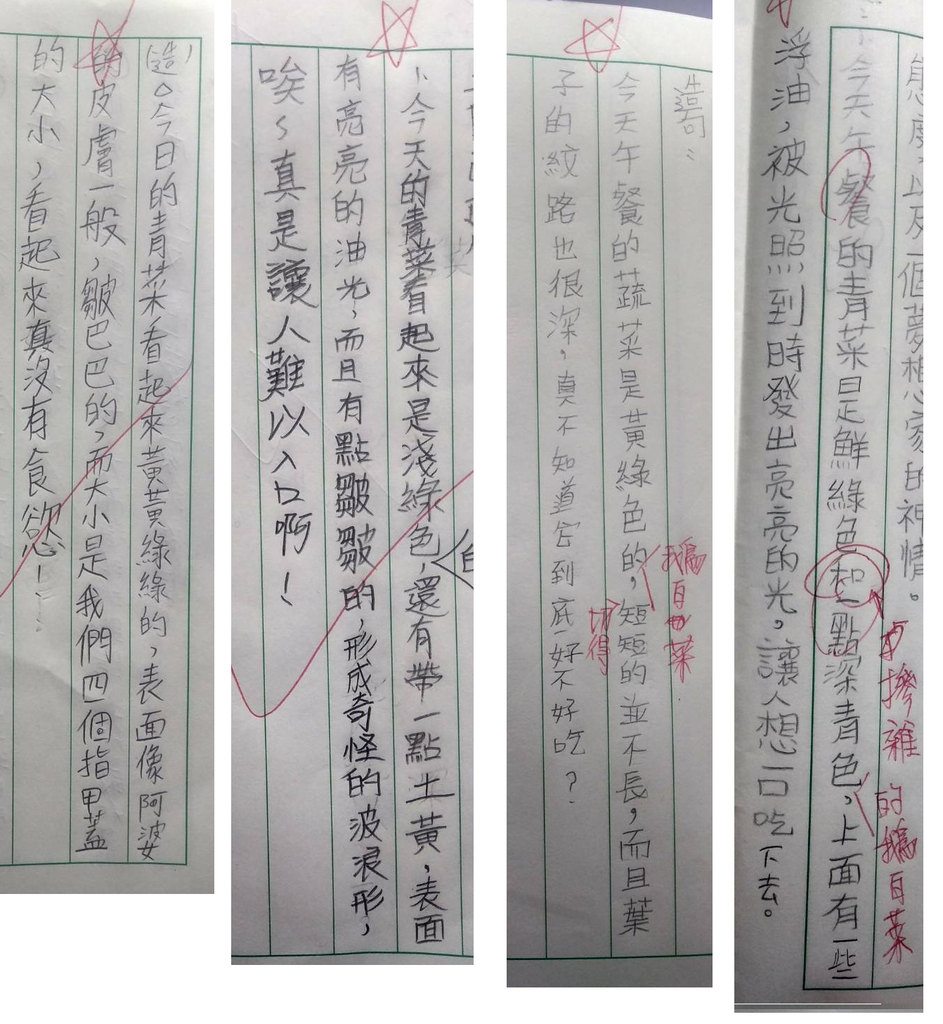 (造)今日的青菜看起來黃黃綠綠的,表面像阿婆
的皮膚一般,皺巴巴的,而大小是我們四個指甲蓋
的大小,看起來真沒有食慾!
1、今天的青菜看起來是淺綠色,還有帶一點土黃,表面
的
有亮亮的油光,而且有點皺皺的,形成奇怪的波浪形,
唉~真是讓人難以入口啊!
造句:
鵝白菜
今天午餐的蔬菜是黃綠色的,短短的並不長,而且葉
切得
子的紋路也很深,真不知道它到底好不好吃?
態度,以及一個夢想家的神情。
摻雜
的鵝白菜
今天午餐的青菜是鮮綠色和一點深青色,上面有一些
浮油,被光照到時發出亮亮的光,讓人想一口吃下去。